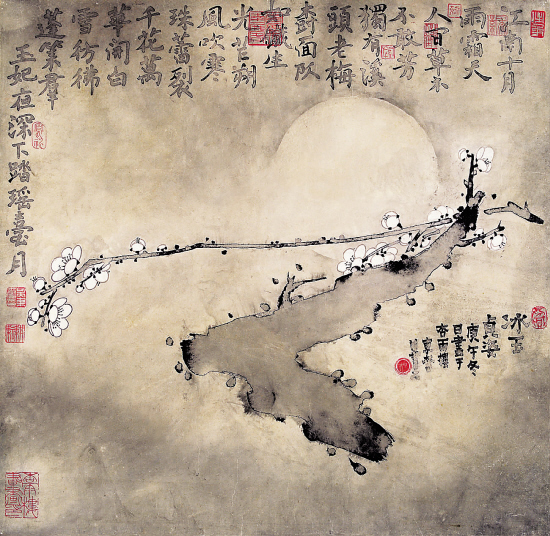 江南十月
雨霜天
人百草木
不敢芳
獨有溪
頭老梅
樹面皮
如鐵生
光芒朔
風吹寒
珠蕾裂
千花萬
華開白
雪彷彿
蓬萊群
玉妃夜深下踏瑤臺月
冰玉
貞姿
庚午冬
日畫于
杏雨樓